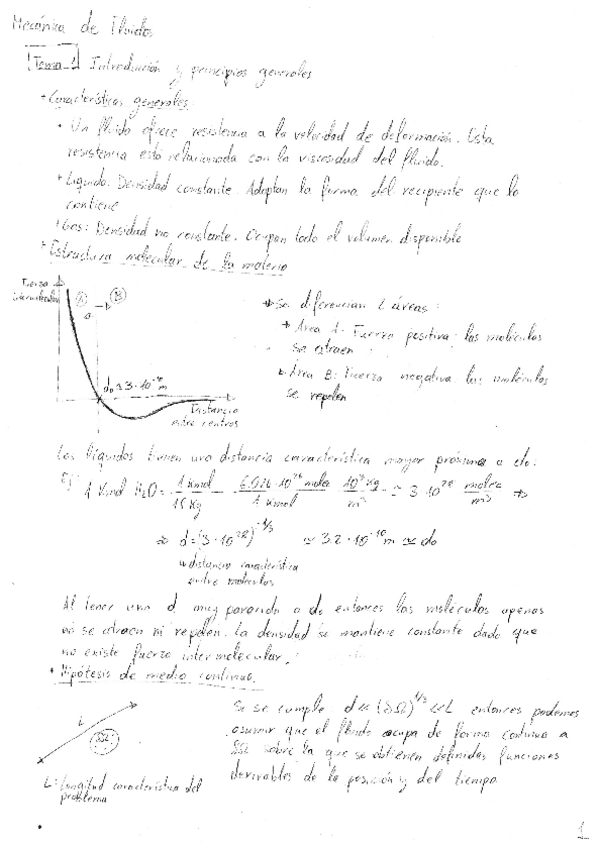 Mecánica de Fluidos
Tema 1 Introducción y principios generales
+ Características generales:
+ Un fluido ofrece resistencia a la velocidad de deformación. Esta
resistencia está relacionada con la viscosidad del fluido.
+ Líquido: Densidad constante. Adoptan la forma del recipiente que lo
contiene
+ Gas: Densidad no constante. Ocupan todo el volumen disponible
+ Estructura molecular de la materia
Fuerza
intermolecular
A
B
d₀ ≃ 3·10⁻¹⁰ m
Distancia
entre centros
Se diferencian 2 áreas:
+ Área A: Fuerza positiva: las moléculas
se atraen
Área B: Fuerza negativa: las moléculas
se repelen
Los líquidos tienen una distancia característica mayor próxima a do.
Ej: 1 Kmol H₂O = 1 Kmol / 18 Kg 6.022·10²⁶ molec / 1 Kmol 10³ Kg / m³ ≃ 3·10²⁸ molec / m³ ⇒
⇒ d = (3·10²⁸)^-1/3 ≃ 3.2·10⁻¹⁰ m ≃ do
distancia característica
entre moléculas
Al tener una d muy parecida a do entonces las moléculas apenas
se atraen ni repelen. La densidad se mantiene constante dado que
no existe fuerza intermolecular.
+ Hipótesis de medio continuo.
L
δΩ
L: Longitud característica del
problema
Si se cumple d << (δΩ)^1/3 << L entonces podemos
asumir que el fluido ocupa de forma continua a
δΩ sobre la que se obtienen definidas funciones
derivables de la posición y del tiempo
1